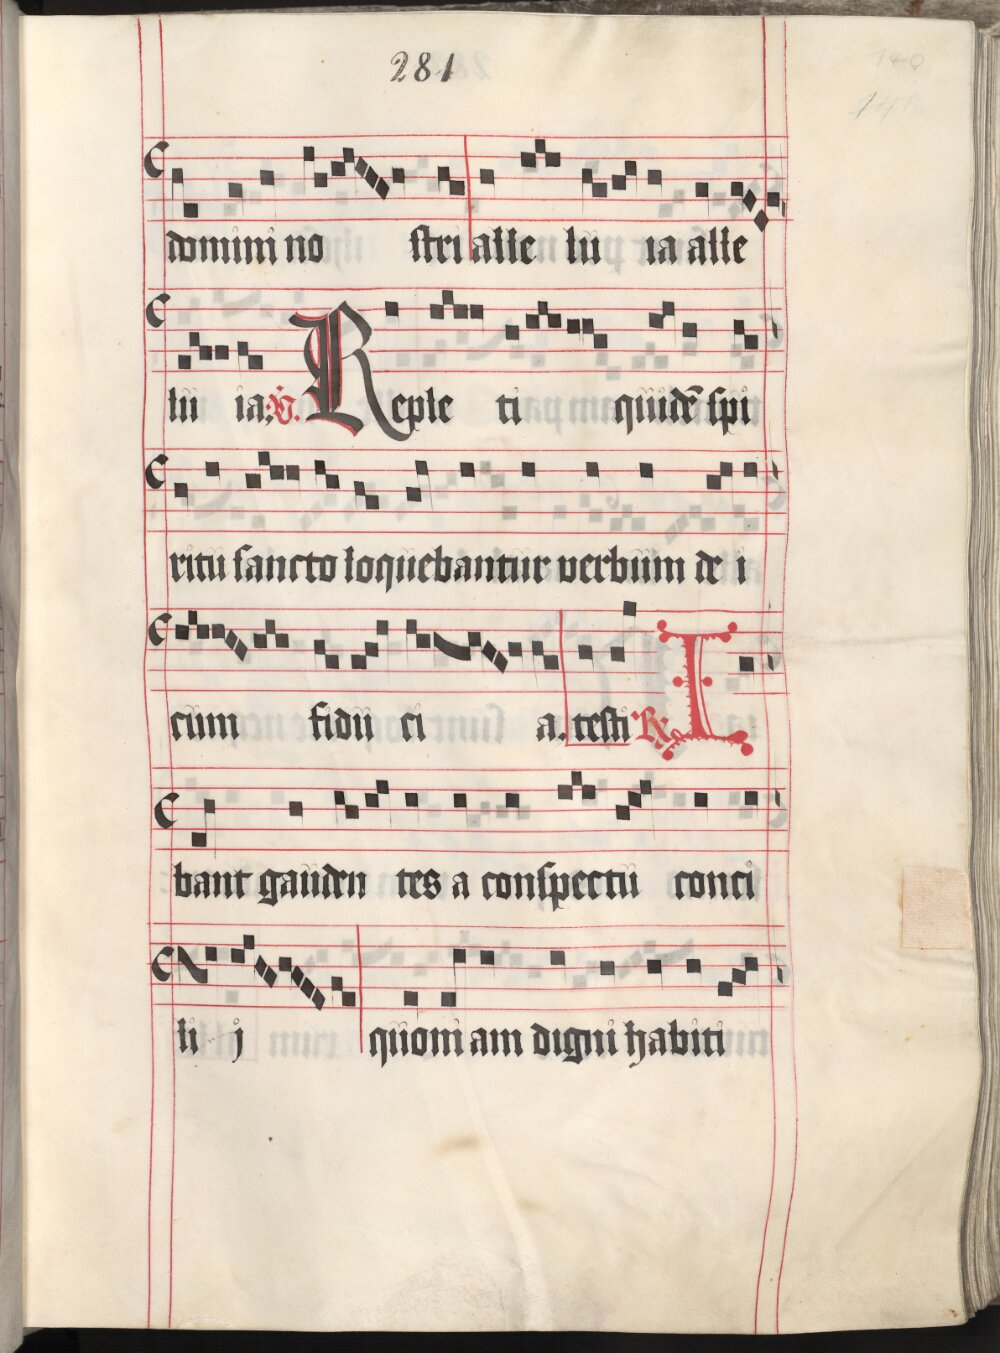 281
domini no stri alle lu ia alle
lu ia: ℣. Reple ti quidē spi
ritu sancto loquebantur verbum de i
cum fidu ci a. testi ℟. I
bant gauden tes a conspectu conci
li j quoni am digni habiti